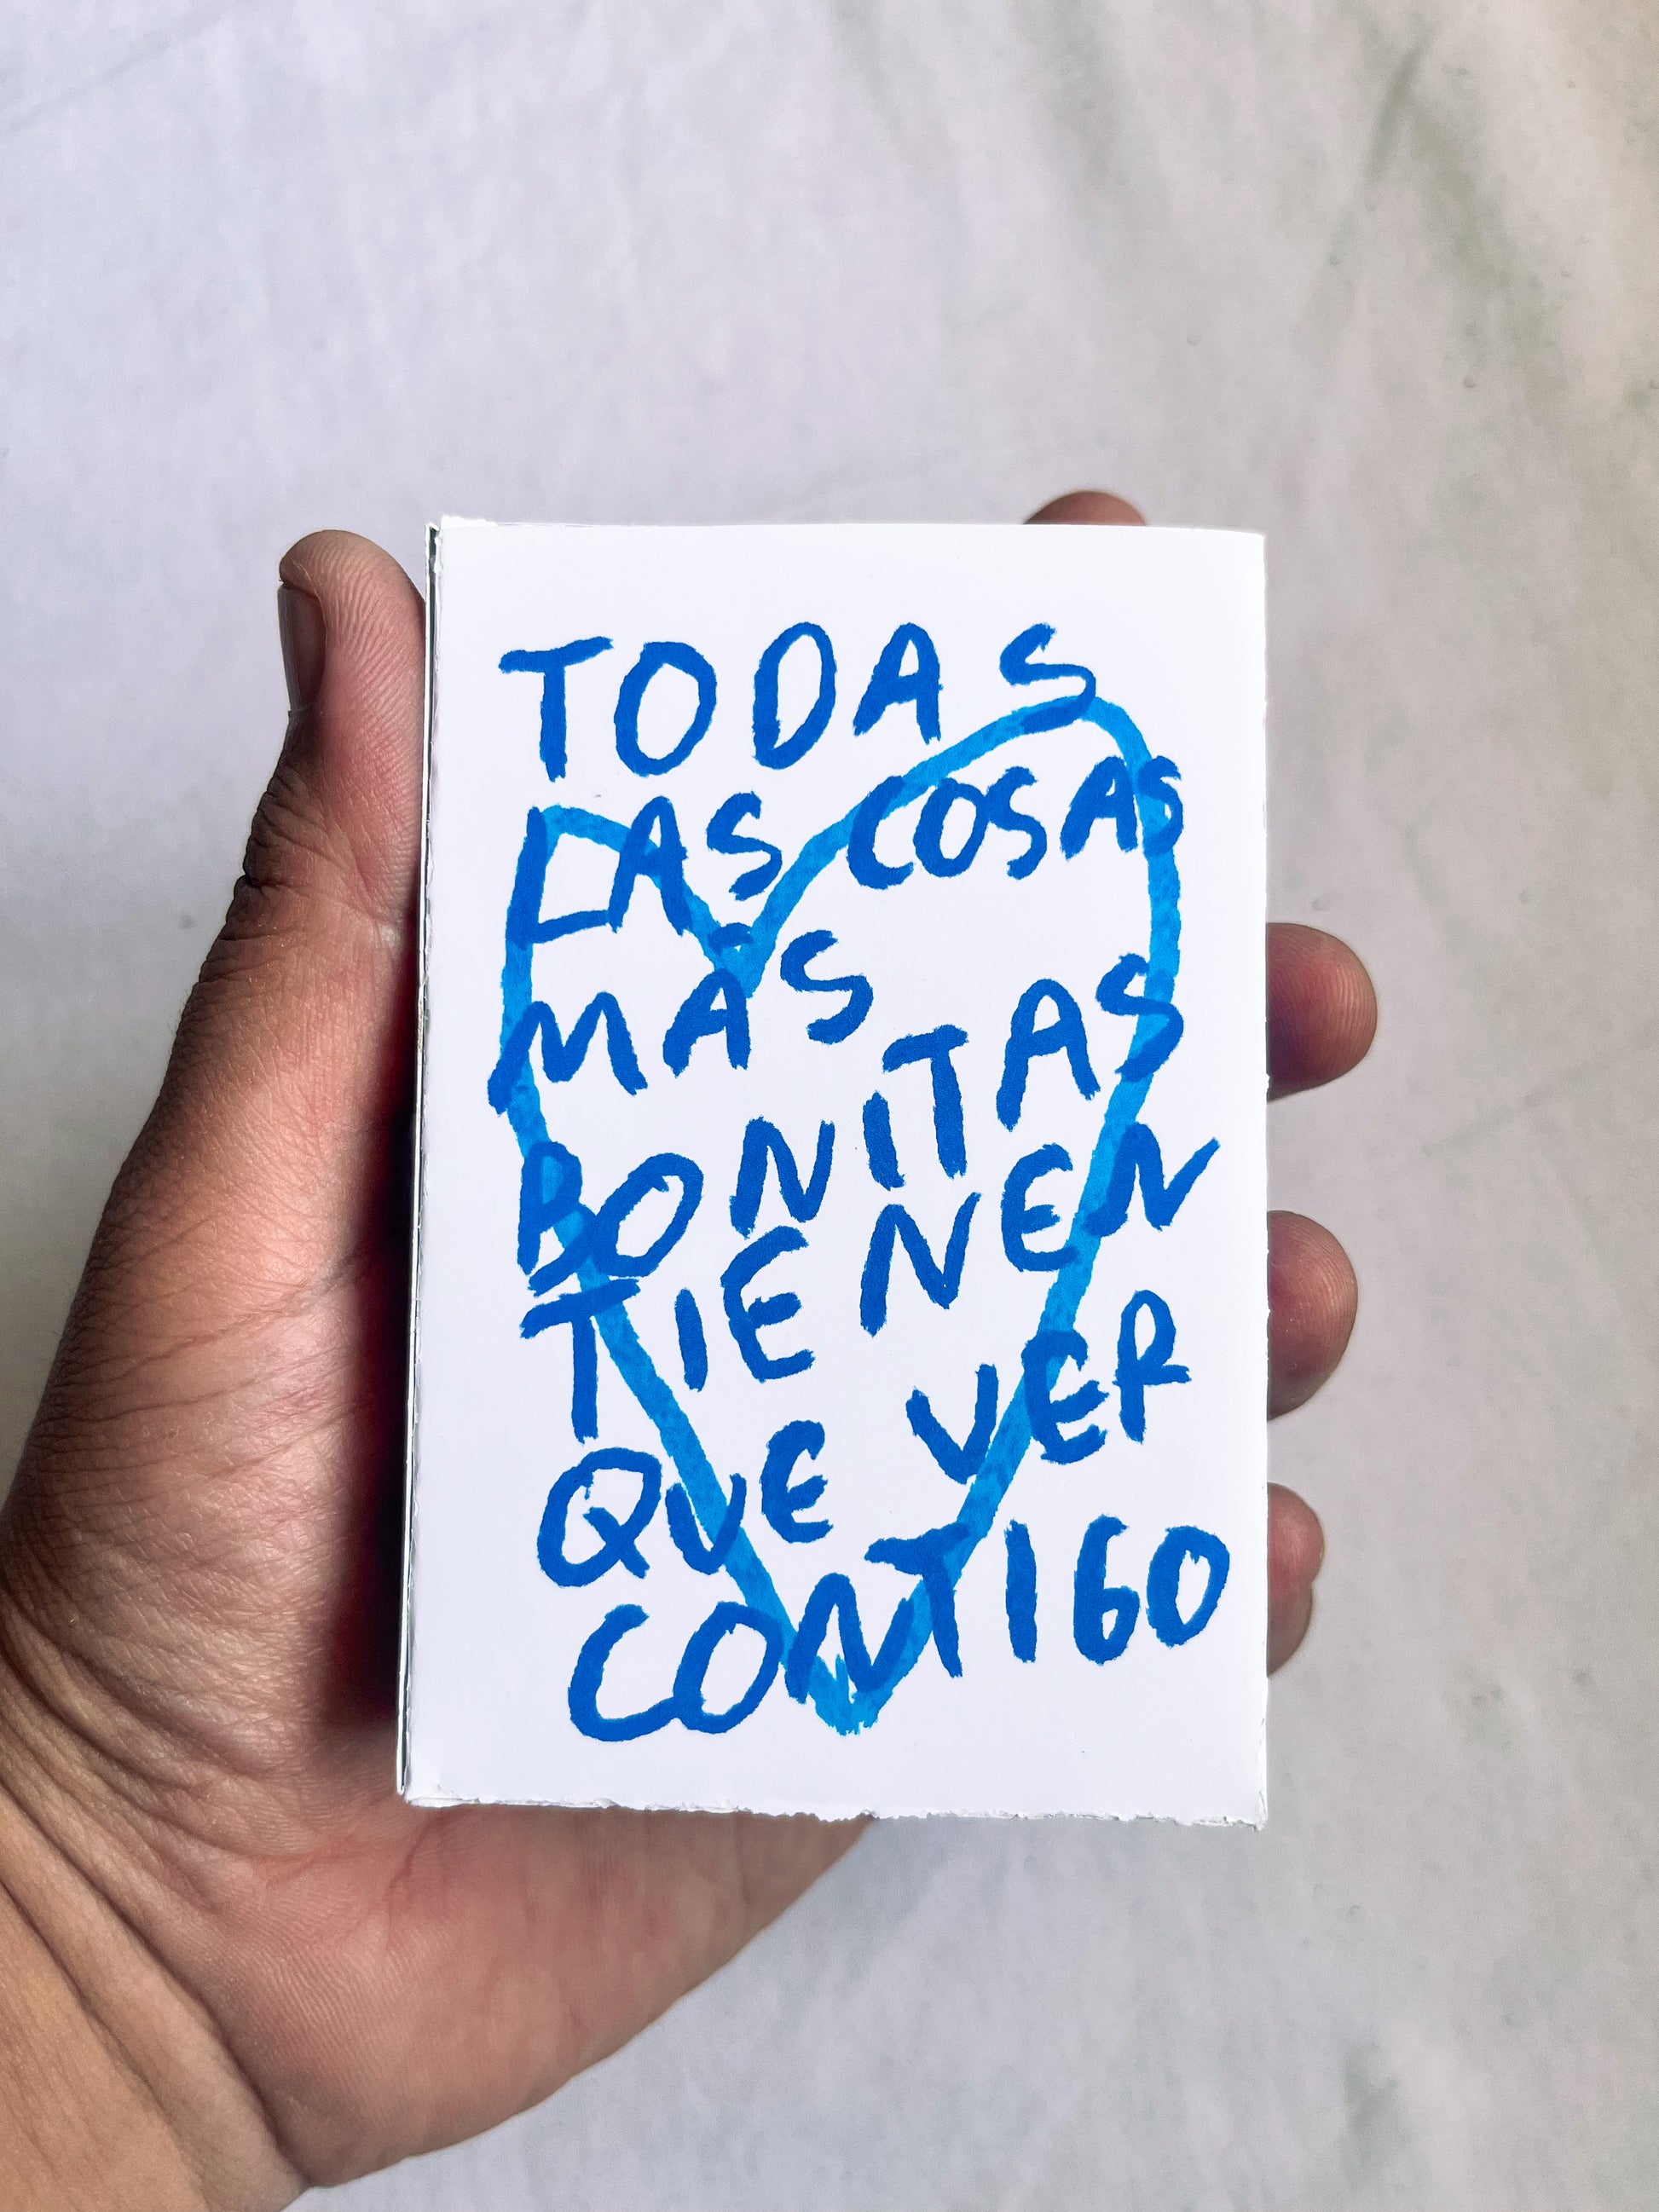 TODAS
LAS COSAS
MÁS
BONITAS
TIENEN
QUE VER
CONTIGO